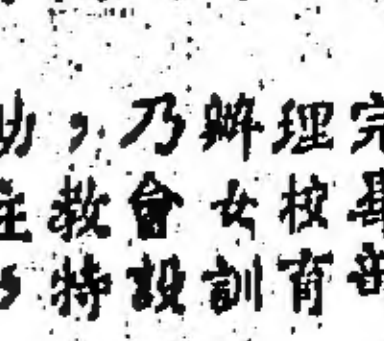 ，乃辦理完
主教會女校
，特設訓育部